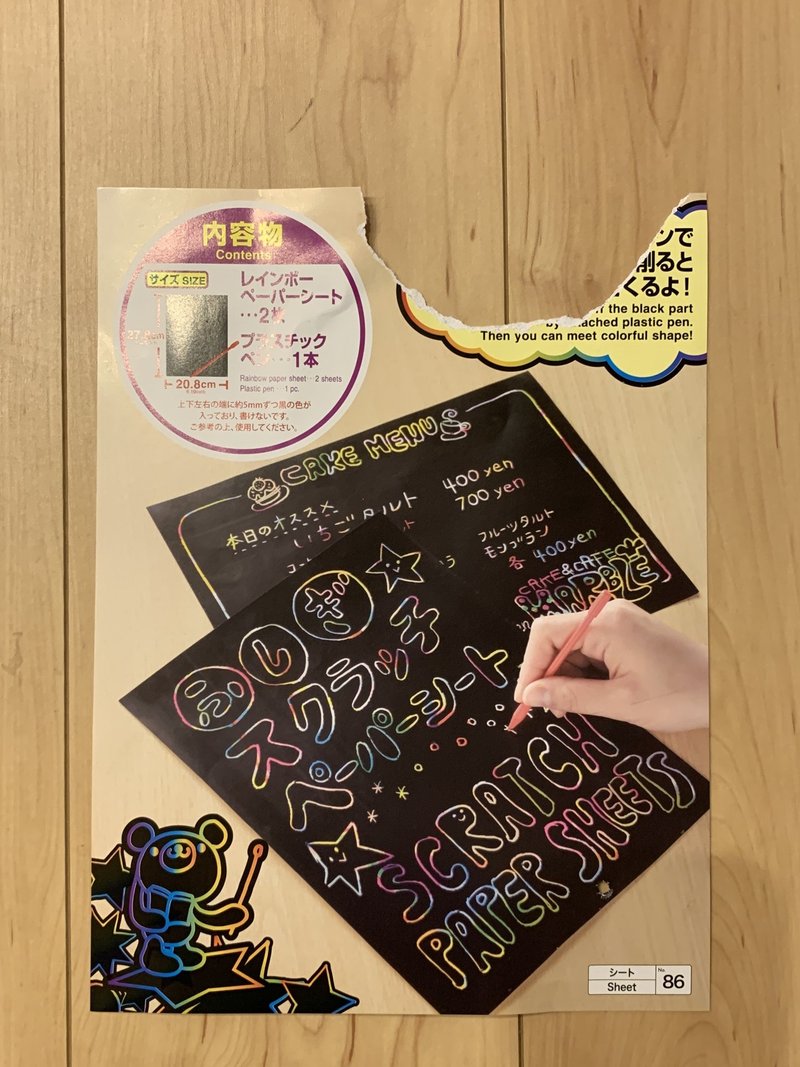 内容物
Contents
サイズ SIZE
レインボー
ペーパーシート
…2枚
プラスチック
ペン…1本
27.8cm
20.8cm
Rainbow paper sheet… 2 sheets
Plastic pen … 1 pc.
上下左右の端に約5mmずつ黒の色が
入っており、書けないです。
ご参考の上、使用してください。
ンで
削ると
くるよ!
the black part
attached plastic pen.
Then you can meet colorful shape!
CAKE MENU
本日のオススメ
いちごタルト 400 yen
700 yen
フルーツタルト
モンブラン
各 400yen
CAKE&CAFE
MARBLE
ふしぎ
スクラッチ
ペーパーシート
SCRATCH
PAPER SHEETS
シート
Sheet
No.
86